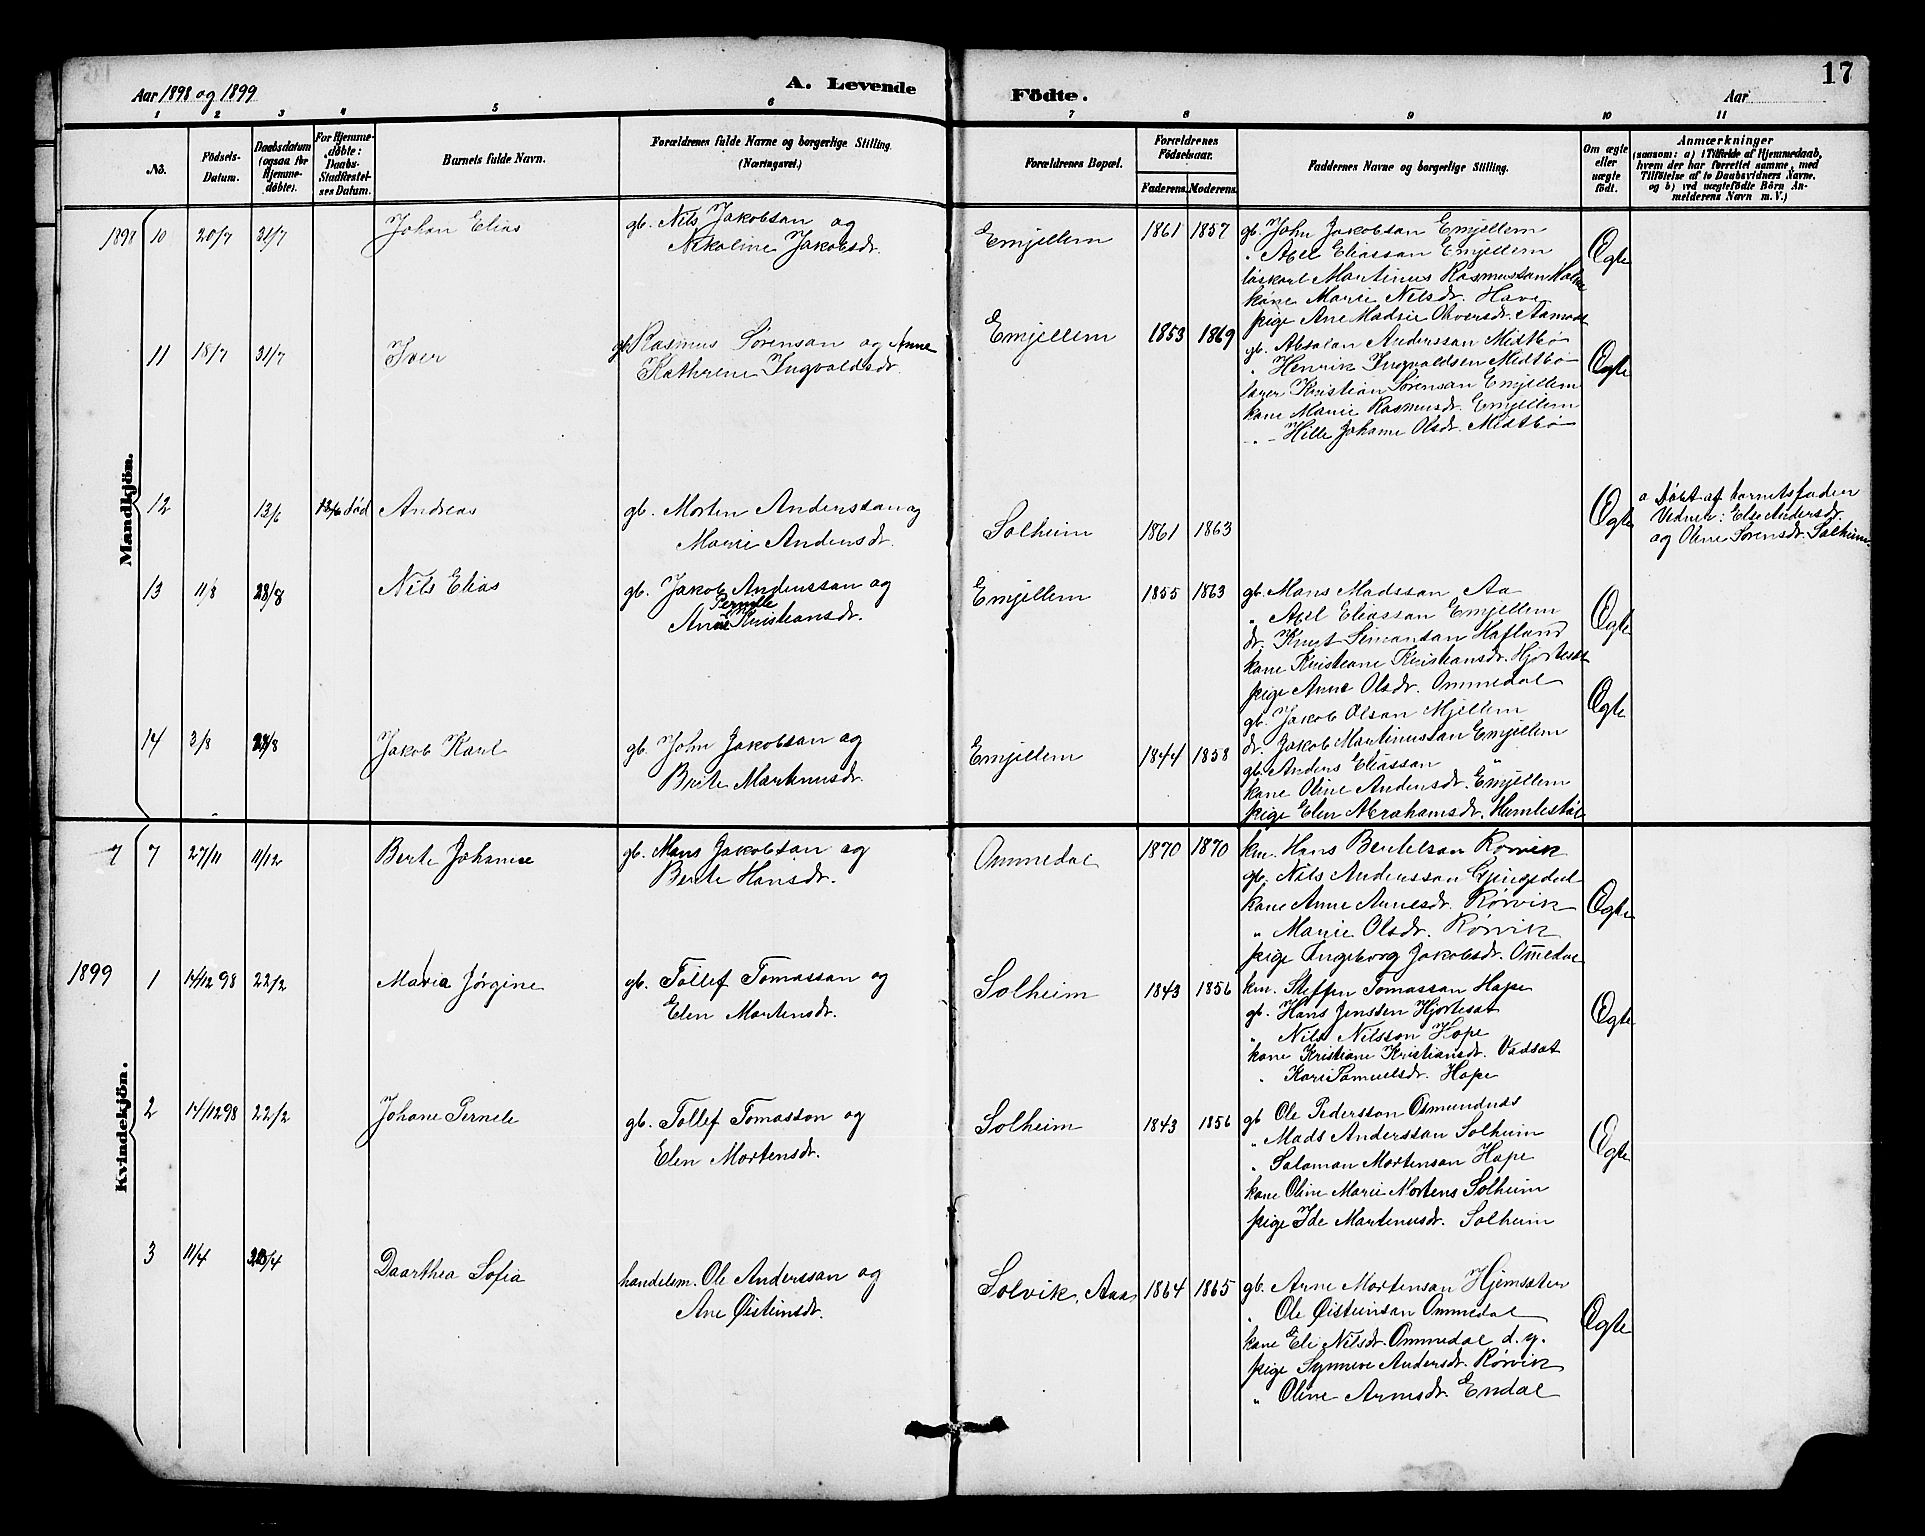 17
Aar 1898 og 1899
A. Levende
Födte.
Aar
1 2 3 4 5 6 7 8 9 10 11
No.
Födsels-
Datum.
Daabsdatum
(ogsaa for
Hjemme-
döbte).
For Hjemme-
döbte:
Daabs-
Stadfæstel-
ses Datum.
Barnets fulde Navn.
Forældrenes fulde Navne og borgerlige Stilling.
(Næringsvei.)
Forældrenes Bopæl.
Forældrenes
Födselsaar.
Faderens. Moderens.
Faddernes Navne og borgerlige Stilling.
Om ægte
eller
uægte
født.
Anmærkninger
(saasom: a) i Tilfælde af Hjemmedaab,
hvem der har forrettet samme, med
Tilföielse af to Daabsvidners Navne.
og b) ved uægtefödte Börn An-
melderens Navn m. V.)
Mandkjön.
1898 10 20/7 31/7 Johan Elias
gb. Nils Jakobsan og
Nikoline Jakobsdr.
Emjellem 1861 1857
gb. John Jakobsan Emjellem
" Abel Eliassan Emjellem
løskarl Martinus Rasmussan
kone Marie Nilsdr.
pige Ane
Ægte
11 18/7 31/7 Iver
gb. Rasmus Sørensan og Anne
Kathrene Ingvaldsdr.
Emjellem 1853 1869
gb. Absalon Anderssan Midtbø
" Henrik Ingvaldsen Midtbø
Kristian Sørensan Emjellem
kone Marie Rasmusdr. Emjellem
" Hille Johanne Olsdr. Midtbø
Ægte
12 13/6 13/6 død Andreas
gb. Morten Anderssan og
Marie Andersdr.
Solheim 1861 1863
Ægte
a Døbt af barnets fader
Vidner: Else Andersdr.
og Oline Sørensdr. Solheim.
13 11/8 28/8 Nils Elias
gb. Jakob Anderssan og
Pernelle
Anne Kristiansdr.
Emjellem 1855 1863
gb. Mons Madssan Aa
" Abel Eliassan Emjellem
dr. Knut Simonsan Hafland
kone Kristiane Kristiansdr. Hjortesæt
pige Anne Olsdr. Ommedal
Ægte
14 3/8 28/8 Jakob Karl
gb. John Jakobsan og
Berte Martinusdr.
Emjellem 1844 1858
gb. Jakob Olsan Mjellem
dr. Jakob Martinussan Emjellem
gb. Anders Eliassan "
kone Oline Andersdr. Emjellem
pige Elen Abrahamsdr. Humlestøl
Ægte
Kvindekjön.
7 7 27/11 11/12 Berte Johanne
gb. Mons Jakobsan og
Berte Hansdr.
Ommedal 1870 1870
km. Hans Bentelsan Rørvik
gb. Nils Anderssan Gjengedal
kone Anne Arnesdr. Rørvik
" Marie Olsdr. Rørvik
pige Ingeborg Jakobsdr. Omedal
Ægte
1899 1 14/12 98 22/2 Maria Jørgine
gb. Tollef Tomassan og
Elen Mortensdr.
Solheim 1843 1856
km. Steffen Tomassan Hope
gb. Hans Jenssen Hjortesæt
" Nils Nilsson Hope
kone Kristiane Kristiansdr. Vadsæt
" Kari Samuelsdr. Hope
Ægte
2 14/12 98 22/2 Johane Pernele
gb. Tollef Tomasson og
Elen Mortensdr.
Solheim 1843 1856
gb Ole Pedersson Osmundnæs
" Mads Anderssan Solheim
" Salamon Mortensan Hope
kone Oline Marie Mortens Solheim
pige Ide Martinusdr. Solheim
Ægte
3 11/4 /4 Daarthea Sofia
handelsm. Ole Anderssan og
Ane Øisteinsdr.
Solvik, Aaa 1864 1865
gb. Arne Mortensan Hjemsæter
" Ole Øisteinsan Ommedal
kone Eli Nilsdr. Ommedal d. y.
pige Synneve Andersdr. Rørvik
" Oline Arnesdr. Endal
Ægte